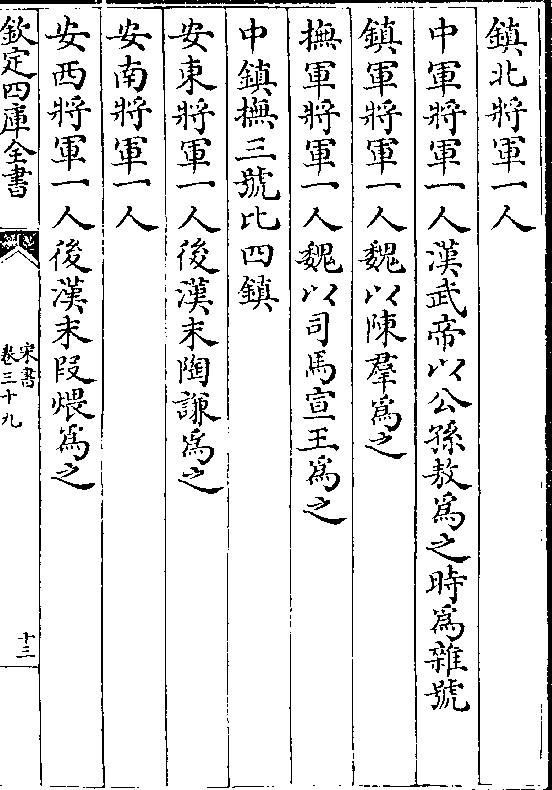 鎮北將軍一人
中軍將軍一人漢武帝以公孫敖為之時為雜號
鎮軍將軍一人魏以陳羣為之
撫軍將軍一人魏以司馬宣王為之
中鎮撫三號比四鎮
安東將軍一人後漢末陶謙為之
安南將軍一人
安西將軍一人後漢末段煨為之
欽定四庫全書
宋書
卷三十九
十三